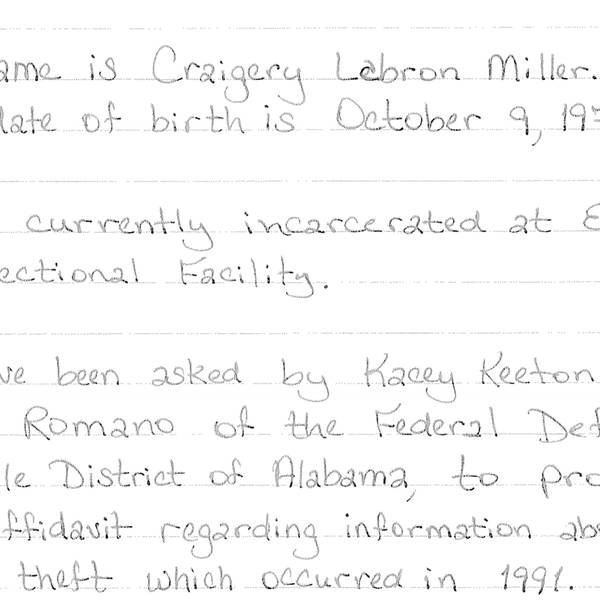 ame is Craigery Lebron Miller.
late of birth is October 9, 19
currently incarcerated at E
ectional Facility.
ve been asked by Kacey Keeton
Romano of the Federal Def
le District of Alabama, to pro
ffidavit regarding information ab
theft which occurred in 1991.